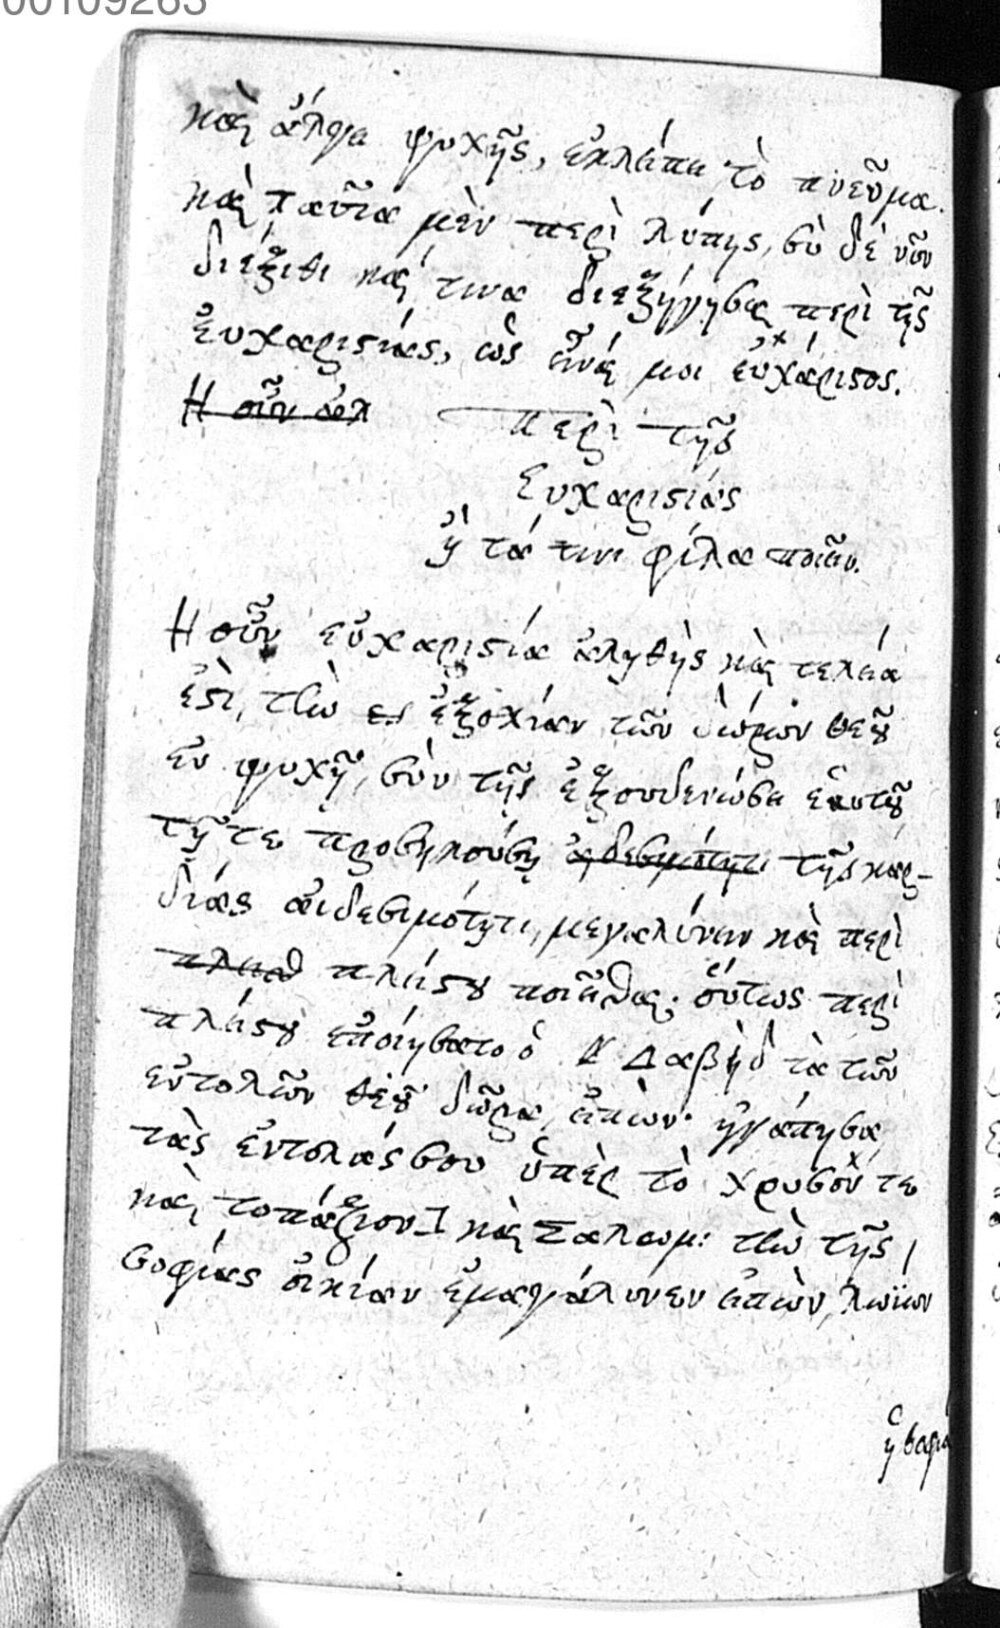 00109263
καὶ ἄλγει ψυχῆς, ἐκλείπει τὸ πνεῦμα.
καὶ ταῦτα μὲν περὶ λύπης, σὺ δὲ νῦν
διέξιθι καί τινα διεξήγησαι περὶ τῆς
Εὐχαριστίας, ὡς εἶναί μοι εὐχάριστος.
Η οὖν ἀλ περὶ τῆς
Εὐχαριστίας
ἢ τά τινι φίλα ποιεῖν.
Η οὖν εὐχαριστία ἀληθὴς καὶ τελεία
ἐστὶ, τὴν ἐξοχὴν τῶν δώρων θεοῦ
ἐν ψυχῇ, σὺν τῆς ἐξουδενώσει ἑαυτοῦ
τῇ τε προσηκούσῃ αἰδεσιμότητι τῆς καρ-
δίας αἰδεσιμότητι, μεγαλύνειν καὶ περὶ
πλείστου ποιεῖσθαι. οὕτως περὶ
πλείστου ἐποιήσατο ὁ Δαβὶδ τὰ τῶν
ἐντολῶν θεοῦ δῶρα, εἰπὼν· ἠγάπησα
τὰς ἐντολάς σου ὑπὲρ τὸ χρυσόν τε
καὶ τοπάζιον καὶ Σαλωμ: τὴν τῆς
σοφίας οἰκίαν ἐμεγάλυνεν εἰπὼν, λωΐων
ἡ σοφία